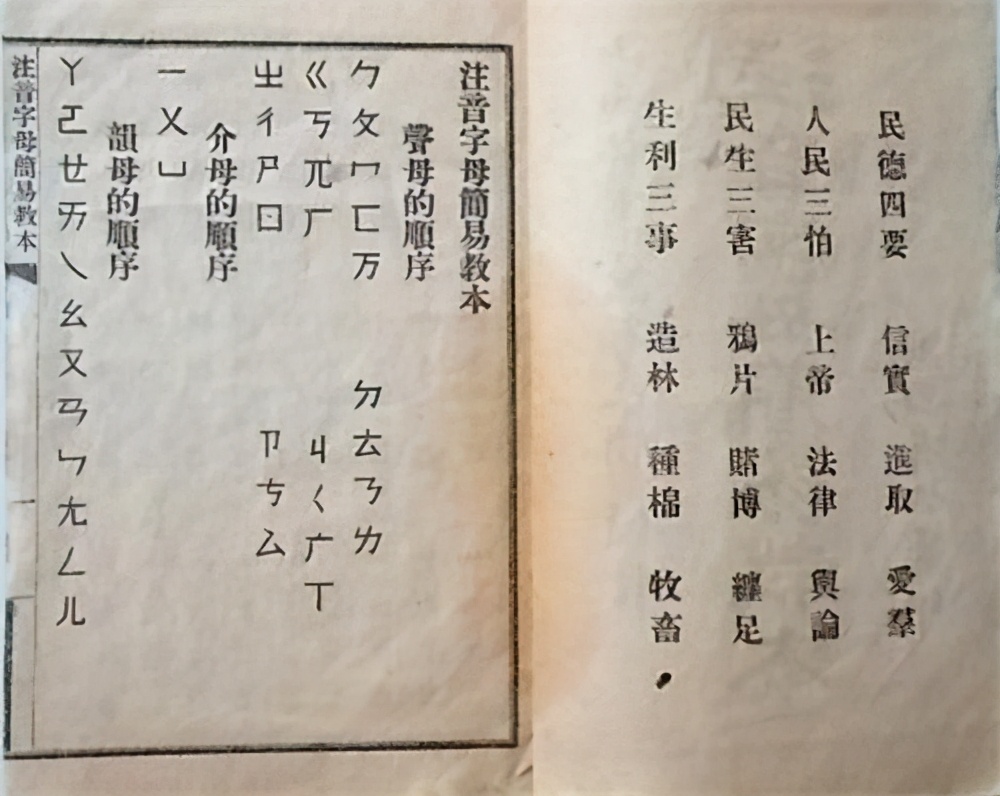 民德四要 信實 進取 愛羣
人民三怕 上帝 法律 輿論
民生三害 鴉片 賭博 纏足
生利三事 造林 種棉 牧畜
注音字母簡易教本
聲母的順序
ㄅㄆㄇㄈㄪ ㄉㄊㄋㄌ
ㄍㄎㄫㄏ ㄐㄑㄬㄒ
ㄓㄔㄕㄖ ㄗㄘㄙ
介母的順序
一ㄨㄩ
韻母的順序
ㄚㄛㄝㄞㄟㄠㄡㄢㄣㄤㄥㄦ
注音字母簡易教本
一